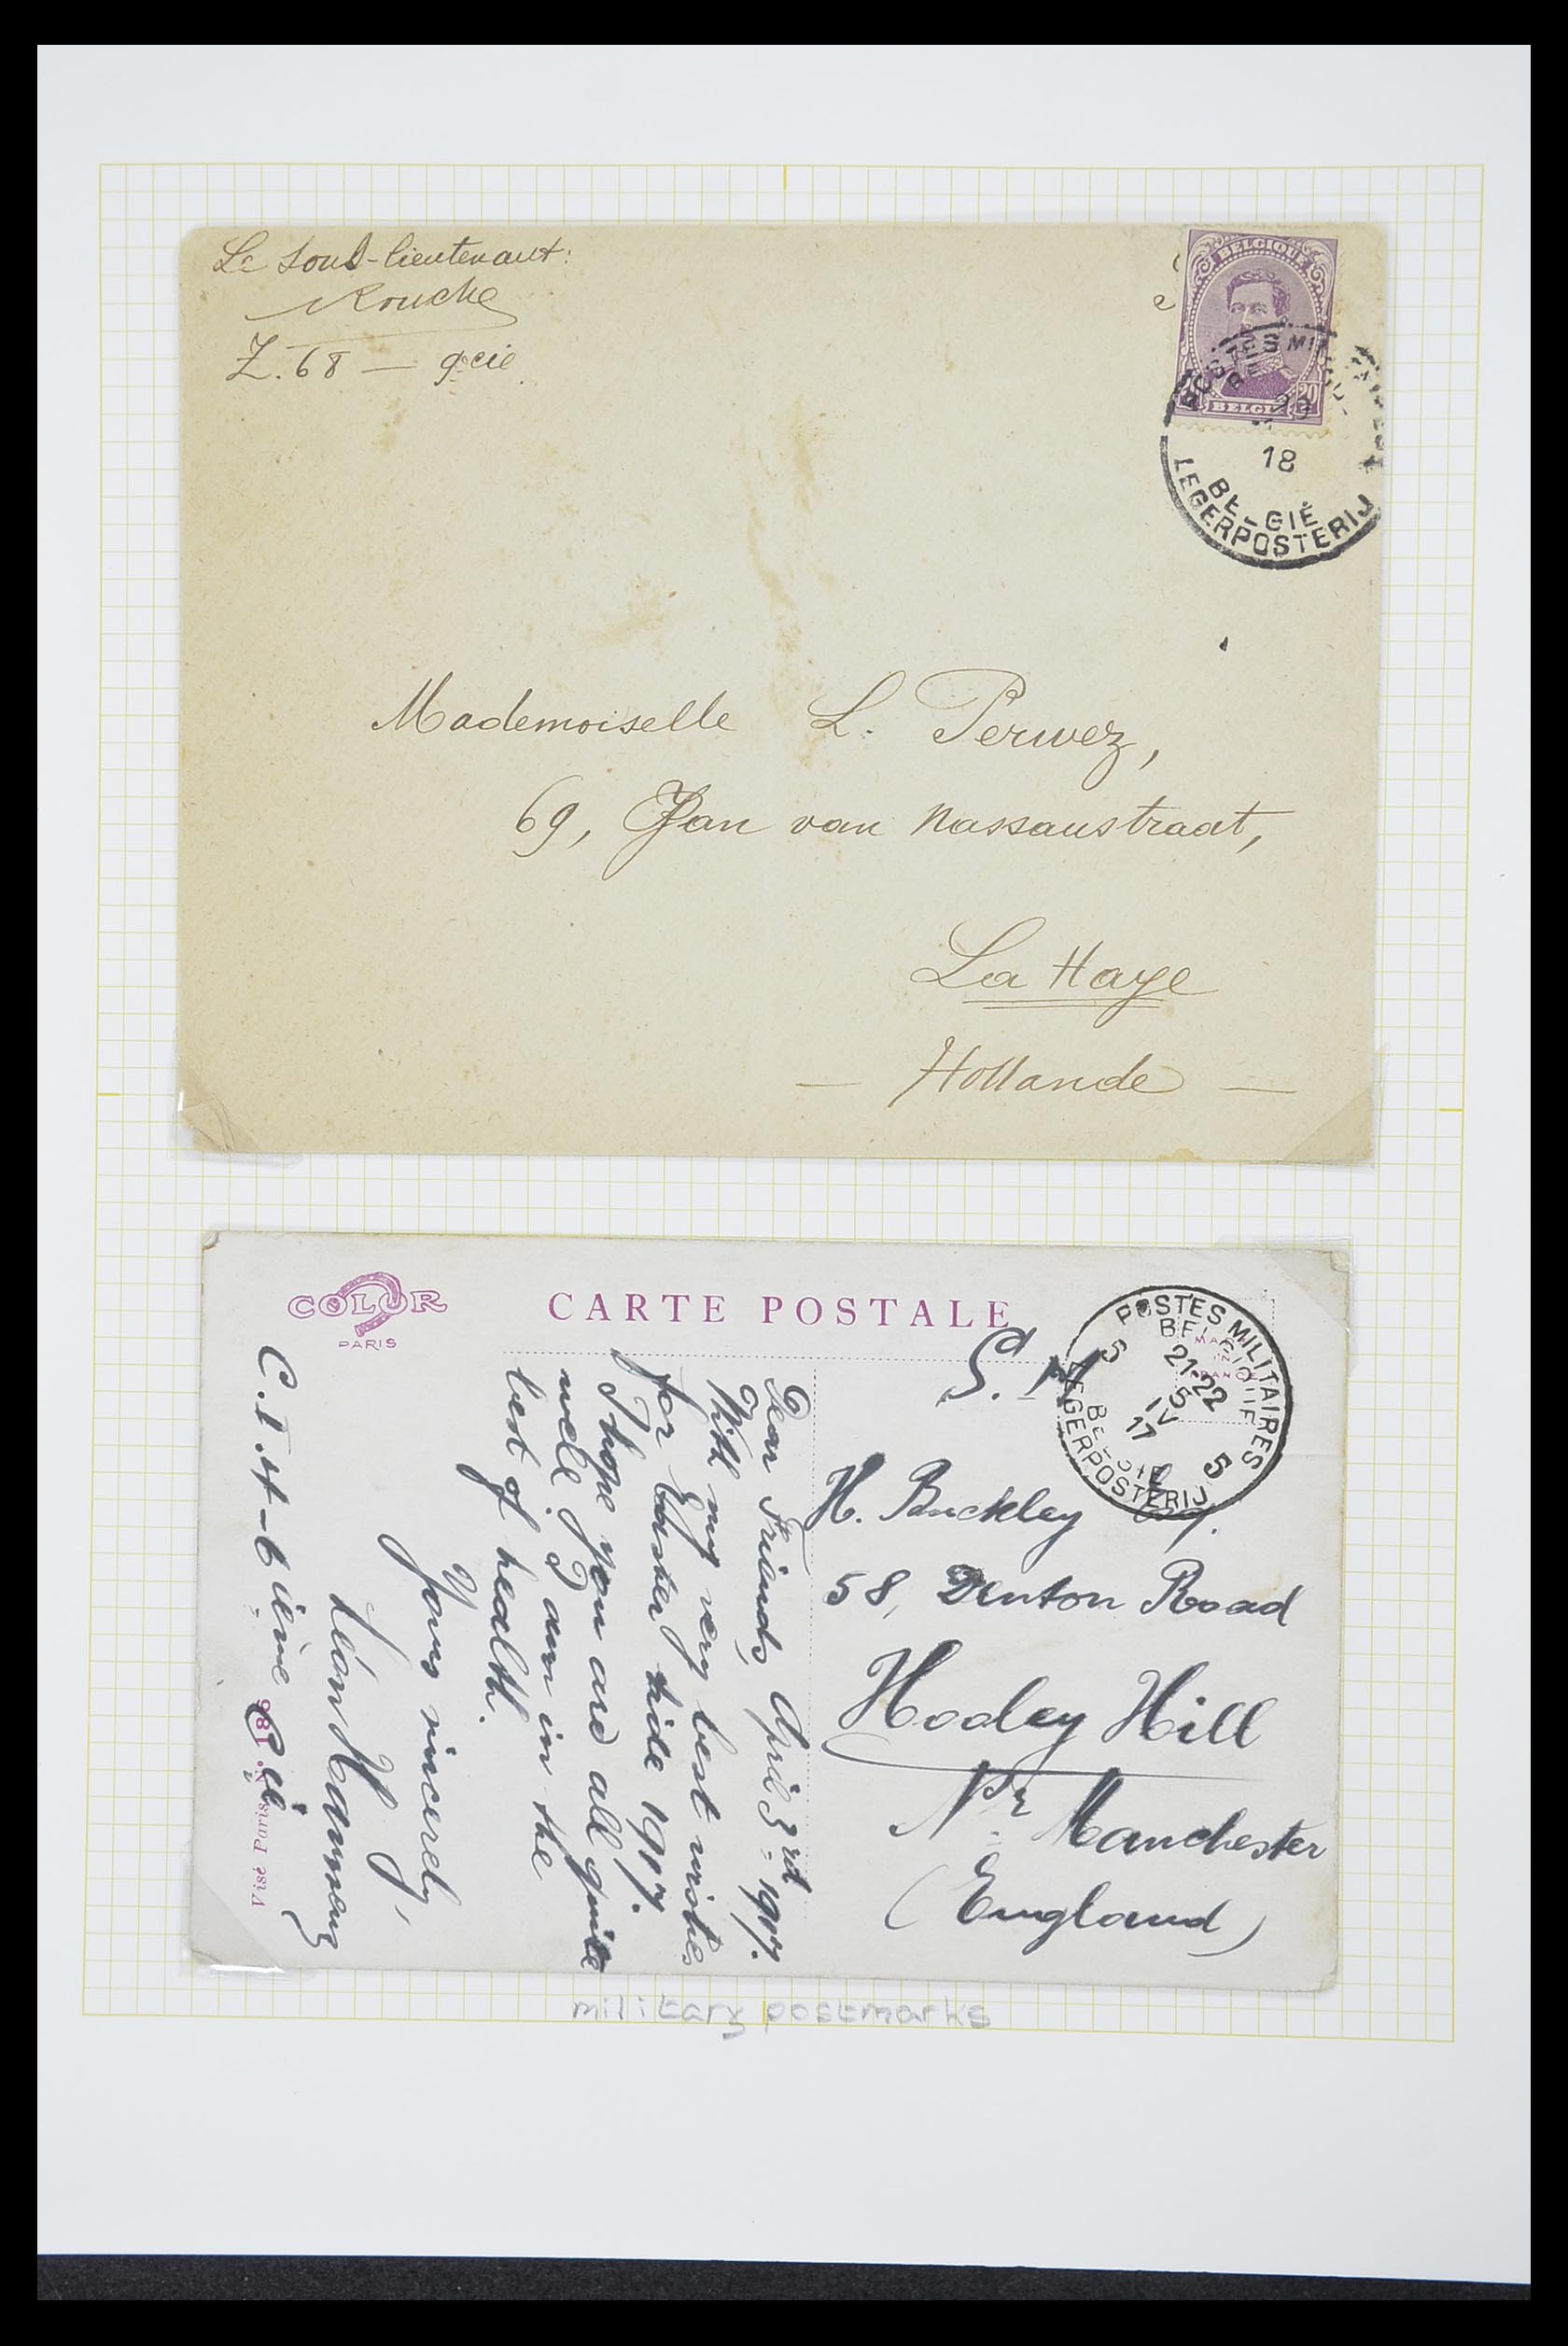 Le sous-lieutenant:
Rouche
Z.68 — 9e cie
BELGIQUE
20
BELGIË
POSTES MI
18
BELGIË
LEGERPOSTERIJ
Mademoiselle L. Perwez,
69, Jan van Nassaustraat,
La Haye
— Hollande —
COLOR
PARIS
CARTE POSTALE
MADE
IN
FRANCE
POSTES MILITAIRES
BELGIQUE
5 21-22 5
5
IV
17
BELGIE
LEGERPOSTERIJ
S. M
H. Buckley
58, Denton Road
Hooley Hill
Nr. Manchester
(England)
Dear Friends, April 3rd - 1917.
With my very best wishes
for Easter tide 1917.
I hope you are all quite
well. I am in the
best of health.
Yours sincerely,
Léon
C.I.4-6ième Cie
Visé Paris N. 186
military postmarks